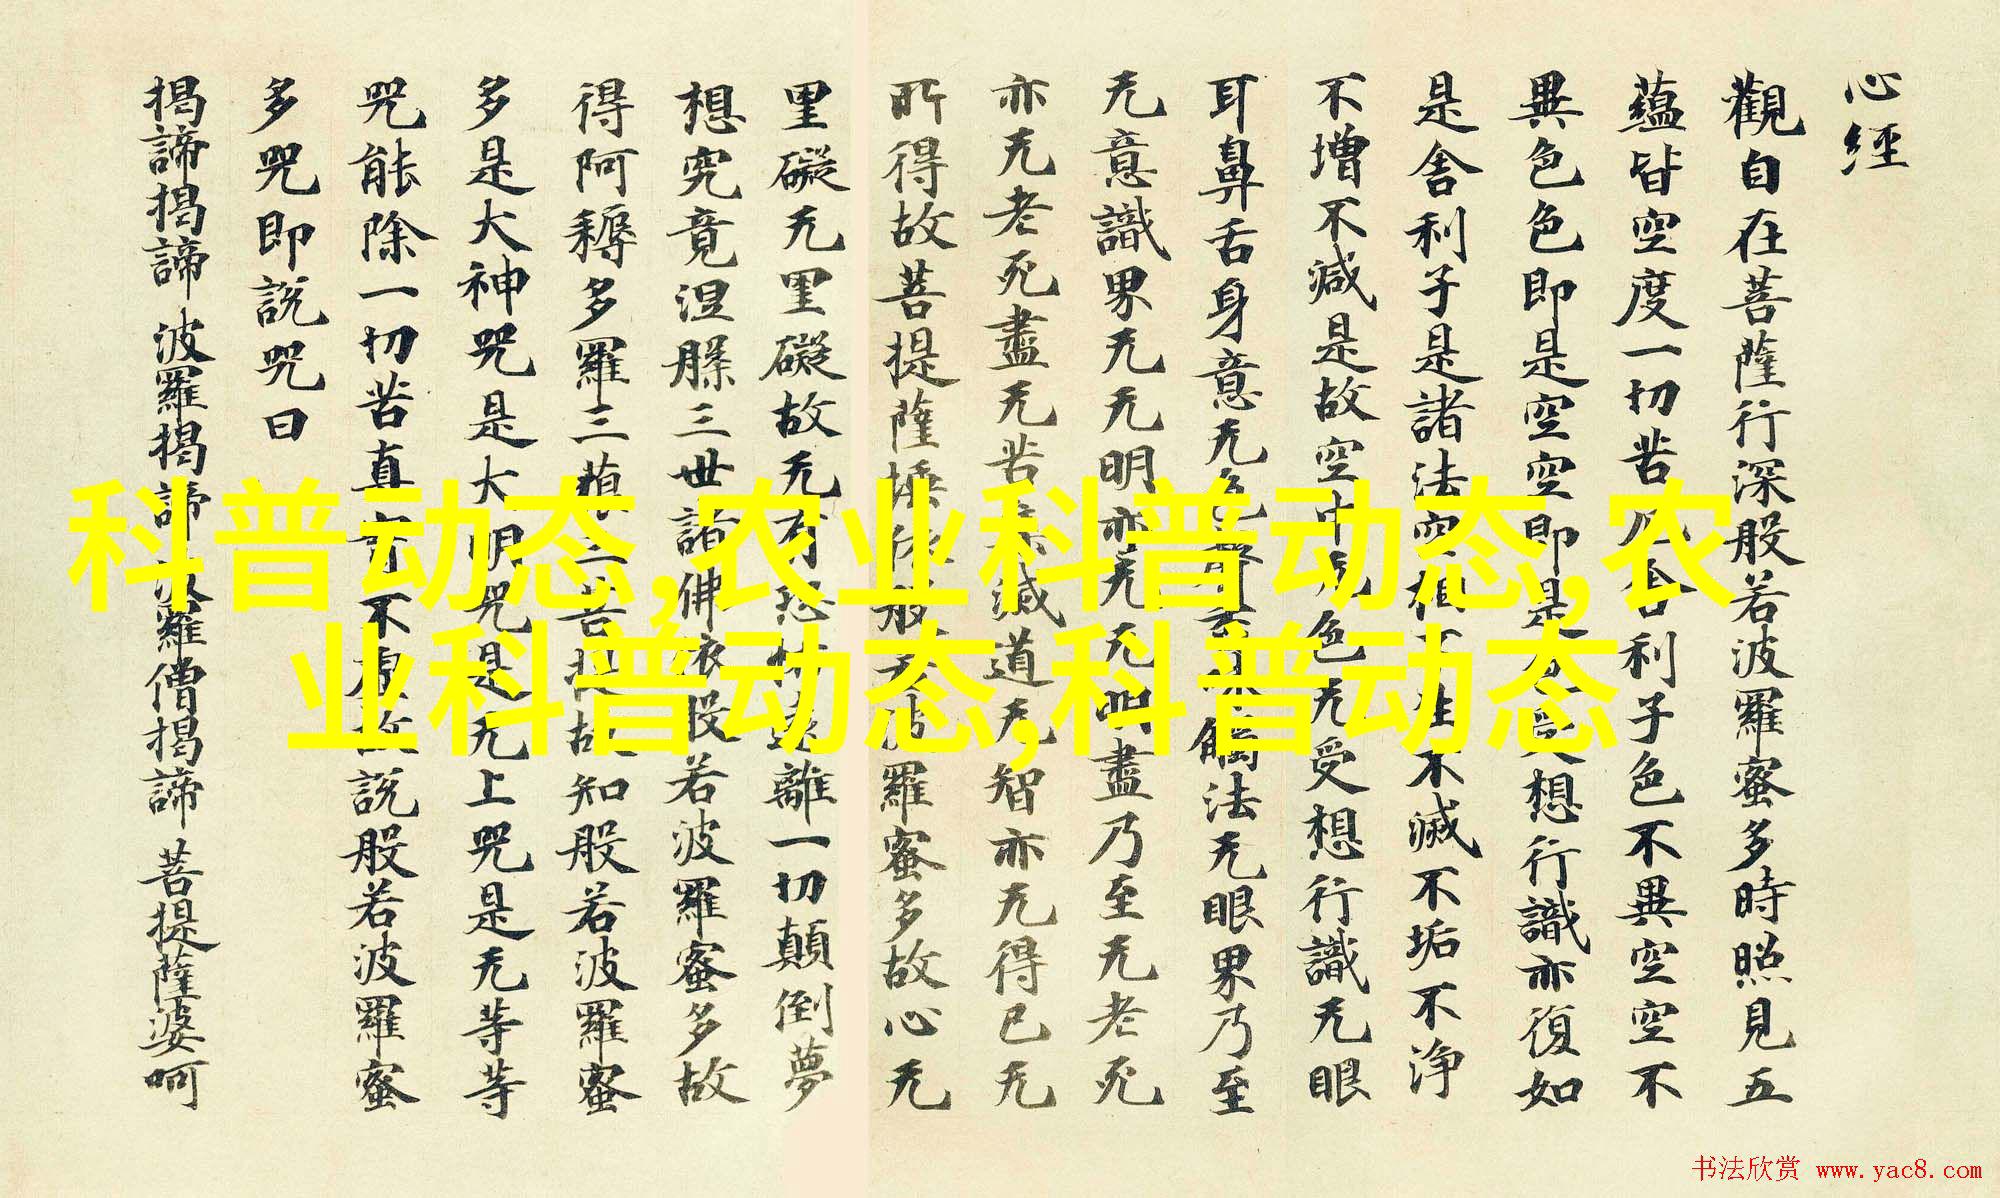 心經
觀自在菩薩行深般若波羅蜜多時照見五
蘊皆空度一切苦舍利子色不異空空不
異色色即是空空即是受想行識亦復如
是舍利子是諸法空相生不滅不垢不淨
不增不減是故空中无色无受想行識无眼
耳鼻舌身意无色聲觸法无眼界乃至
无意識界无无明亦无无明盡乃至无老死
亦无老死盡无苦滅道无智亦无得已无
所得故菩提薩埵依般波羅蜜多故心无
罣礙无罣礙故无有恐怖遠離一切顛倒夢
想究竟涅槃三世諸佛依般若波羅蜜多故
得阿耨多羅三藐三菩提故知般若波羅蜜
多是大神咒是大明咒是无上咒是无等等
咒能除一切苦真實不虛故說般若波羅蜜
多咒即說咒曰
揭諦揭諦 波羅揭諦 波羅僧揭諦 菩提薩婆呵
科普动态,农业科普动态,农
业科普动态,科普动态
书法欣赏 www.yac8.com